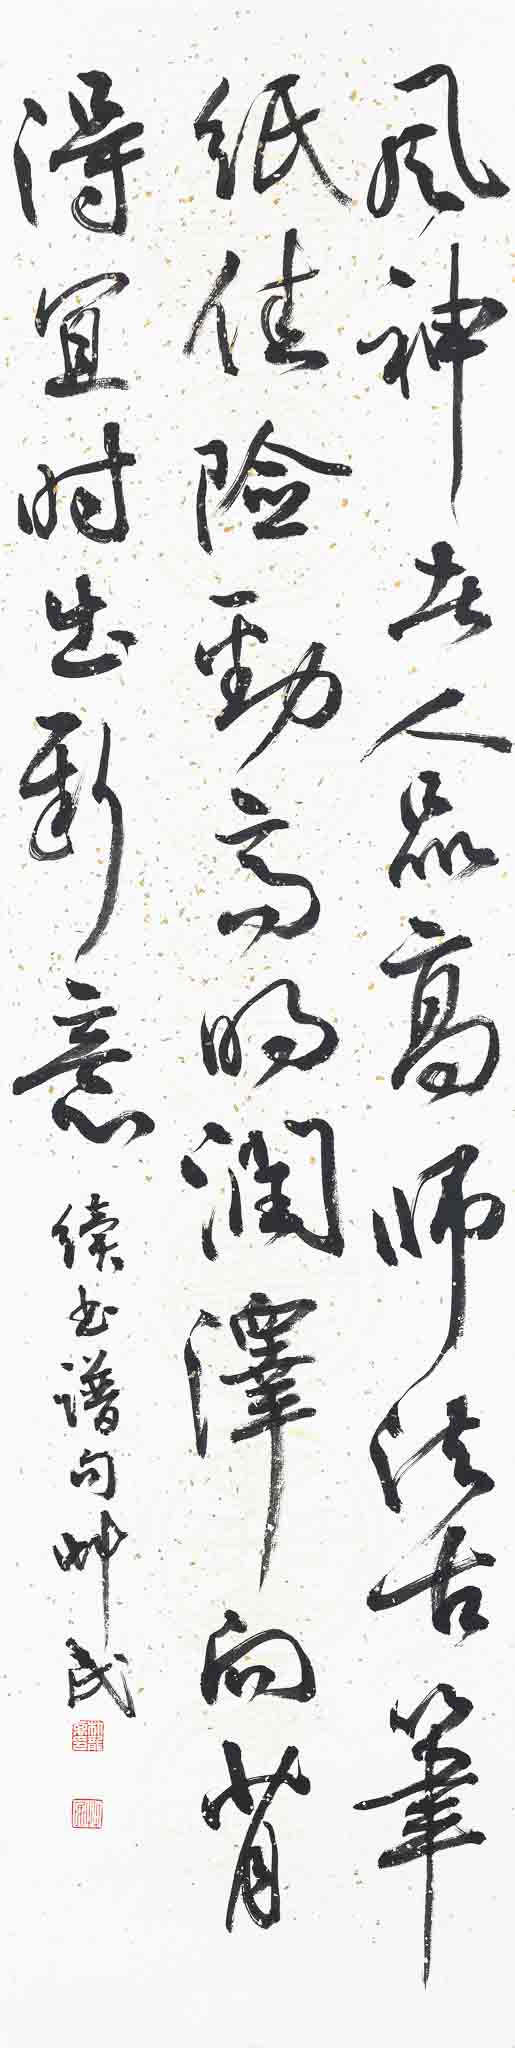 風神者人品高师法古筆
紙佳險勁高明潤澤向背
得宜时出新意
續书譜句艸民